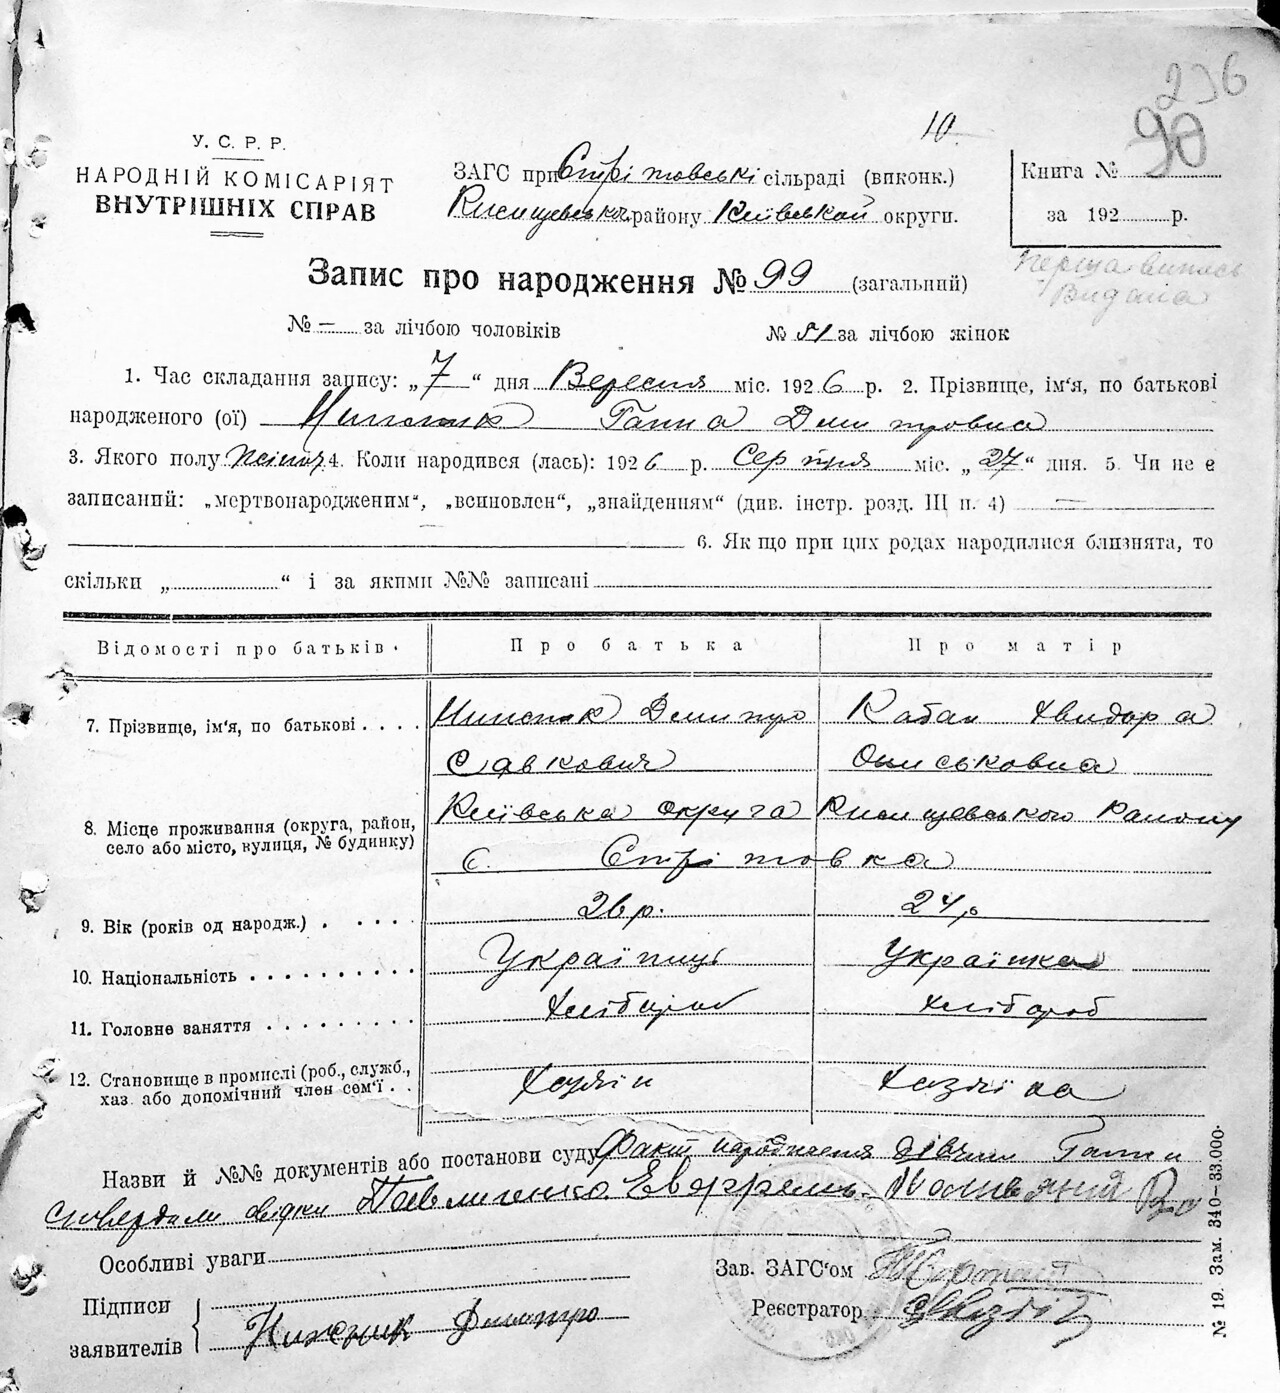 236
10.
90
У. С. Р. Р.
НАРОДНІЙ КОМІСАРІЯТ
ВНУТРІШНІХ СПРАВ
ЗАГС при Стрітовські сільраді (виконк.)
району Київської округи.
Книга №
за 192 р.
Перша випись
Видана
Запис про народження № 99 (загальний)
№ — за лічбою чоловіків № 51 за лічбою жінок
1. Час складання запису: „ 7 “ дня Вересня міс. 192 6 р. 2. Прізвище, ім'я, по батькові
народженого (ої) Нижник Ганна Дмитровна
3. Якого полу жіноч. 4. Коли народився (лась): 192 6 р. Серпня міс. „ 27 “ дня. 5. Чи не є
записаний: „мертвонародженим“, „всиновлен“, „знайденням“ (див. інстр. розд. III п. 4) —
6. Як що при цих родах народилися близнята, то
скільки „ “ і за якими №№ записані
Відомості про батьків. Про батька Про матір
7. Прізвище, ім'я, по батькові . . . . Нижник Дмитро Кабан Хвидора
Савкович Ониськовна
8. Місце проживання (округа, район, село або місто, вулиця, № будинку) Київська округа Району
с. Стрітовка
9. Вік (років од народж.) . . . . . 26 р. 24 р
10. Національність . . . . . . . . . . Українць Українка
11. Головне заняття . . . . . . . . . Хлібороб хлібороб
12. Становище в промислі (роб., служб., хаз. або допомічний член сем'ї . . Хазяїн Хазяїка
Назви й №№ документів або постанови суду Факт народження дівчини Ганни
ствердили свідки Павличенко
Особливі уваги
Зав. ЗАГС'ом
Підписи
заявителів Нижник Дмитро
Реєстратор
№ 19. Зам. 340—33.000.